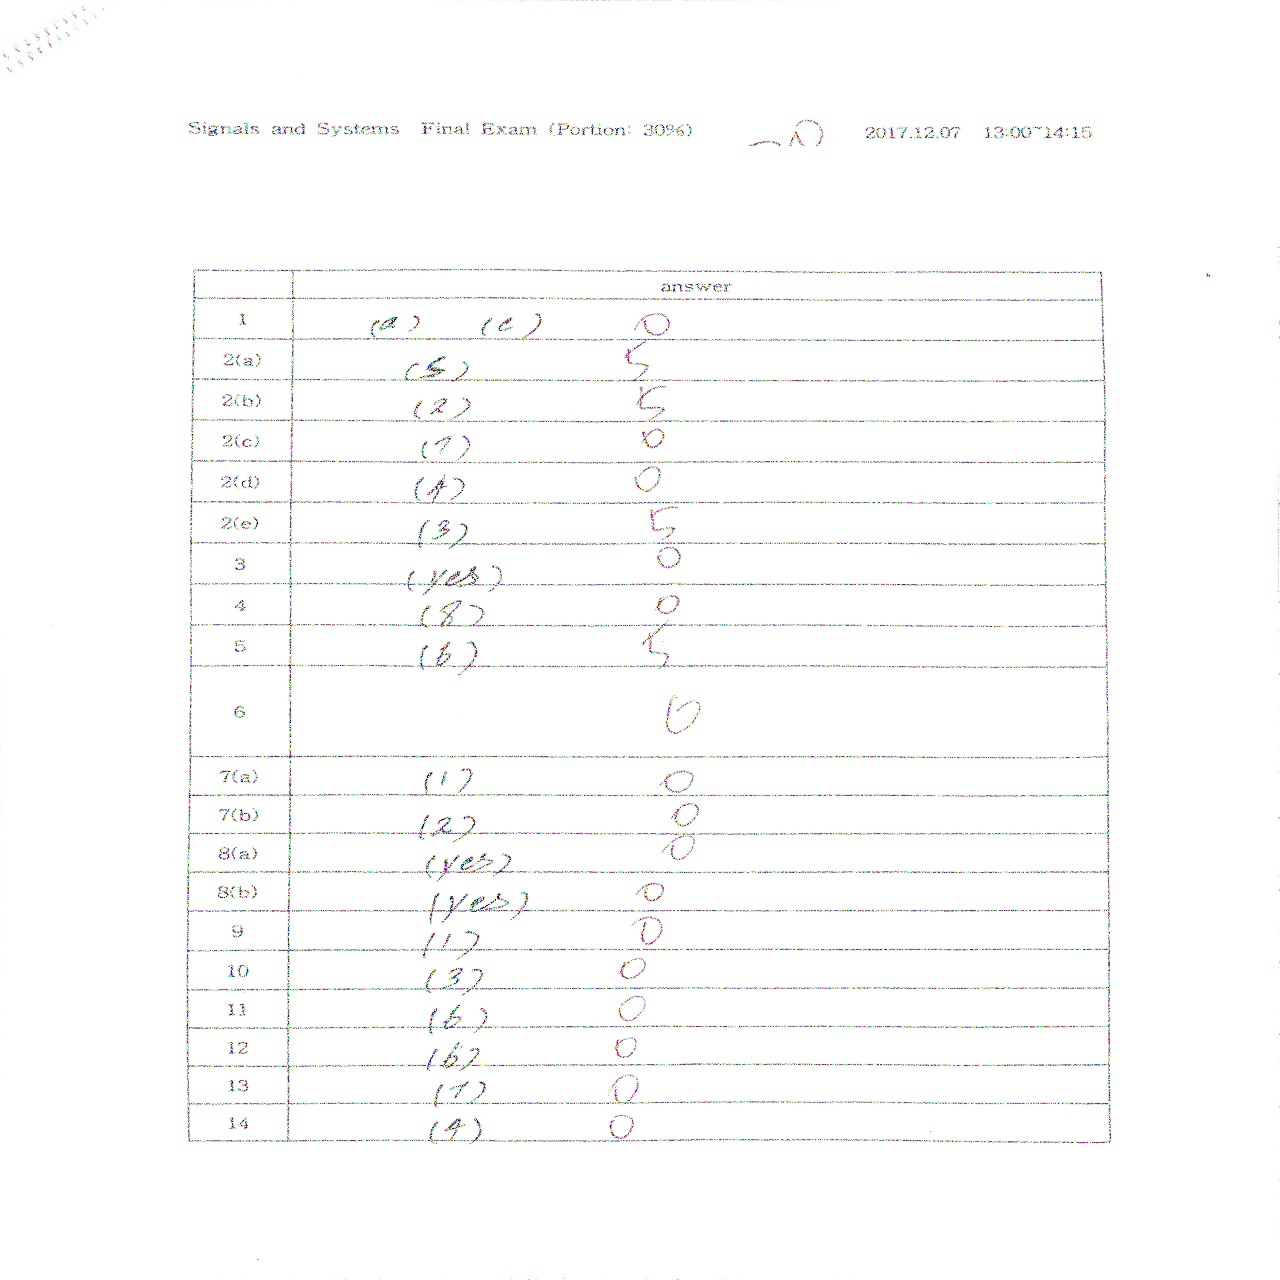 Signals and Systems Final Exam (Portion: 30%) 2017.12.07 13:00~14:15
answer
1 (a) (c) 0
2(a) (5) 5
2(b) (2) 5
2(c) (7) 0
2(d) (4) 0
2(e) (3) 5
3 (yes) 0
4 (8) 0
5 (6) 5
6 0
7(a) (1) 0
7(b) (2) 0
8(a) (yes) 0
8(b) (yes) 0
9 (1) 0
10 (3) 0
11 (6) 0
12 (6) 0
13 (7) 0
14 (4) 0